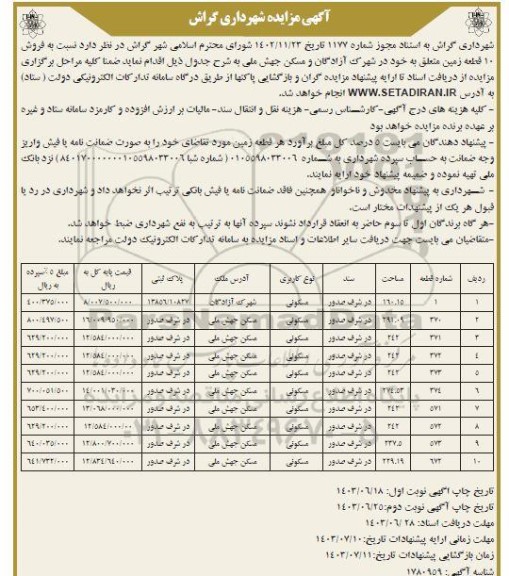 آگهی مزایده شهرداری گراش
شهرداری گراش به استناد مجوز شماره ۱۱۷۷ تاریخ ۱۴۰۲/۱۱/۲۳ شورای محترم اسلامی شهر گراش در نظر دارد نسبت به فروش
۱۰ قطعه زمین متعلق به خود در شهرک آزادگان و مسکن جهش ملی به شرح جدول ذیل اقدام نماید ضمنا کلیه مراحل برگزاری
مزایده از دریافت اسناد تا ارایه پیشنهاد مزایده گران و بازگشایی پاکتها از طریق درگاه سامانه تدارکات الکترونیکی دولت ( ستاد)
به آدرس WWW.SETADIRAN.IR انجام خواهد شد.
- کلیه هزینه های درج آگهی-کارشناس رسمی- هزینه نقل و انتقال سند- مالیات بر ارزش افزوده و کارمزد سامانه ستاد و غیره
بر عهده برنده مزایده خواهد بود
- پیشنهاد دهندگان می بایست ۵ درصد کل مبلغ برآورد هر قطعه زمین مورد تقاضای خود را به صورت ضمانت نامه یا فیش واریز
وجه ضمانت به حساب سپرده شهرداری به شماره ۰۱۰۵۵۹۸۰۳۳۰۰۶ ( شماره شبا ۸۴۰۱۷۰۰۰۰۰۰۰۱۰۵۵۹۸۰۳۳۰۰۶) نزد بانک
ملی تهیه نموده و ضمیمه پیشنهاد خود ارایه نمایند.
- شهرداری به پیشنهاد مخدوش و ناخوانا و همچنین فاقد ضمانت نامه یا فیش بانکی ترتیب اثر نخواهد داد و شهرداری در رد یا
قبول هر یک از پیشنهادات مختار است.
-هر گاه برندگان اول تا سوم حاضر به انعقاد قرارداد نشوند سپرده آنها به ترتیب به نفع شهرداری ضبط خواهد شد.
-متقاضیان می بایست جهت دریافت سایر اطلاعات و اسناد مزایده به سامانه تدارکات الکترونیک دولت مراجعه نمایند.
ردیف شماره قطعه مساحت سند نوع کاربری آدرس ملک پلاک ثبتی قیمت پایه کل به ریال مبلغ ۵٪ سپرده به ریال
۱ ۱ ۱۶۰.۱۵ در شرف صدور مسکونی شهرک آزادگان ۱۳۸۵۶/۱۰۸۲۷ ۸/۰۰۷/۵۰۰/۰۰۰ ۴۰۰/۳۷۵/۰۰۰
۲ ۳۷۰ ۲۹۱.۰۹ در شرف صدور مسکونی مسکن جهش ملی در شرف صدور ۱۶/۰۰۹/۹۵۰/۰۰۰ ۸۰۰/۴۹۷/۵۰۰
۳ ۳۷۱ ۲۴۲ در شرف صدور مسکونی مسکن جهش ملی در شرف صدور ۱۲/۵۸۴/۰۰۰/۰۰۰ ۶۲۹/۲۰۰/۰۰۰
۴ ۳۷۲ ۲۴۲ در شرف صدور مسکونی مسکن جهش ملی در شرف صدور ۱۲/۵۸۴/۰۰۰/۰۰۰ ۶۲۹/۲۰۰/۰۰۰
۵ ۳۷۳ ۲۴۲ در شرف صدور مسکونی مسکن جهش ملی در شرف صدور ۱۲/۵۸۴/۰۰۰/۰۰۰ ۶۲۹/۲۰۰/۰۰۰
۶ ۳۷۴ ۲۷۴.۵۳ در شرف صدور مسکونی مسکن جهش ملی در شرف صدور ۱۴/۰۰۱/۰۳۰/۰۰۰ ۷۰۰/۰۵۱/۵۰۰
۷ ۵۷۱ ۲۴۲ در شرف صدور مسکونی مسکن جهش ملی در شرف صدور ۱۳/۰۶۸/۰۰۰/۰۰۰ ۶۵۳/۴۰۰/۰۰۰
۸ ۵۷۲ ۲۴۲ در شرف صدور مسکونی مسکن جهش ملی در شرف صدور ۱۲/۵۸۴/۰۰۰/۰۰۰ ۶۲۹/۲۰۰/۰۰۰
۹ ۵۷۳ ۲۳۷.۵ در شرف صدور مسکونی مسکن جهش ملی در شرف صدور ۱۲/۸۰۰/۷۰۰/۰۰۰ ۶۴۰/۰۳۵/۰۰۰
۱۰ ۶۷۲ ۲۲۹.۱۹ در شرف صدور مسکونی مسکن جهش ملی در شرف صدور ۱۲/۸۳۴/۶۴۰/۰۰۰ ۶۴۱/۷۳۲/۰۰۰
تاریخ چاپ آگهی نوبت اول: ۱۴۰۳/۰۶/۱۸
تاریخ چاپ آگهی نوبت دوم:۱۴۰۳/۰۶/۲۵
مهلت دریافت اسناد: ۱۴۰۳/۰۶/۲۸
مهلت زمانی ارایه پیشنهادات تاریخ:۱۴۰۳/۰۷/۱۰
زمان بازگشایی پیشنهادات تاریخ:۱۴۰۳/۰۷/۱۱
شناسه آگهی: ۱۷۸۰۹۵۹